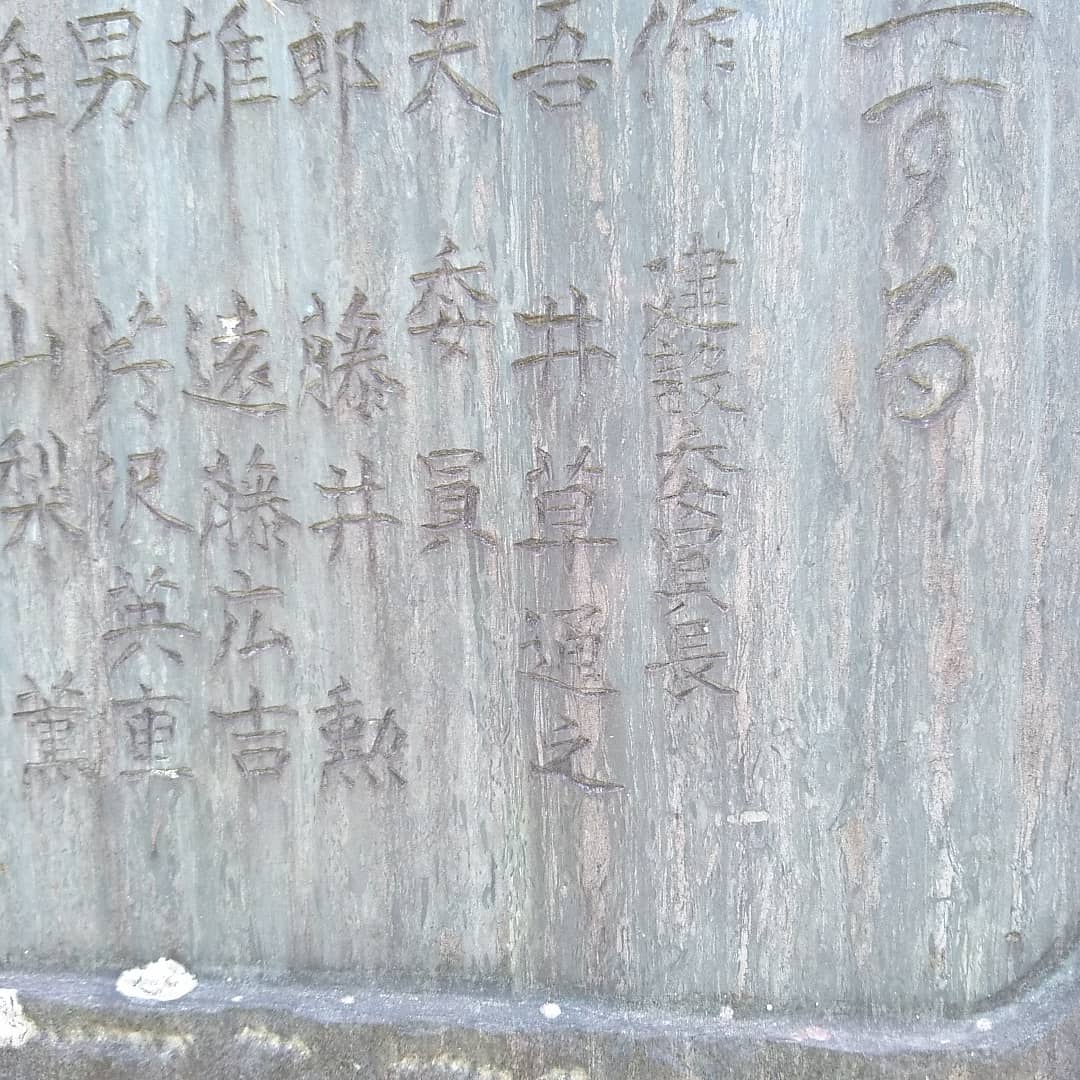 る
作 建設委員長
吾 井草通之
夫 委員
郎 藤井勲
雄 遠藤広吉
男 芹沢英重
山梨薫